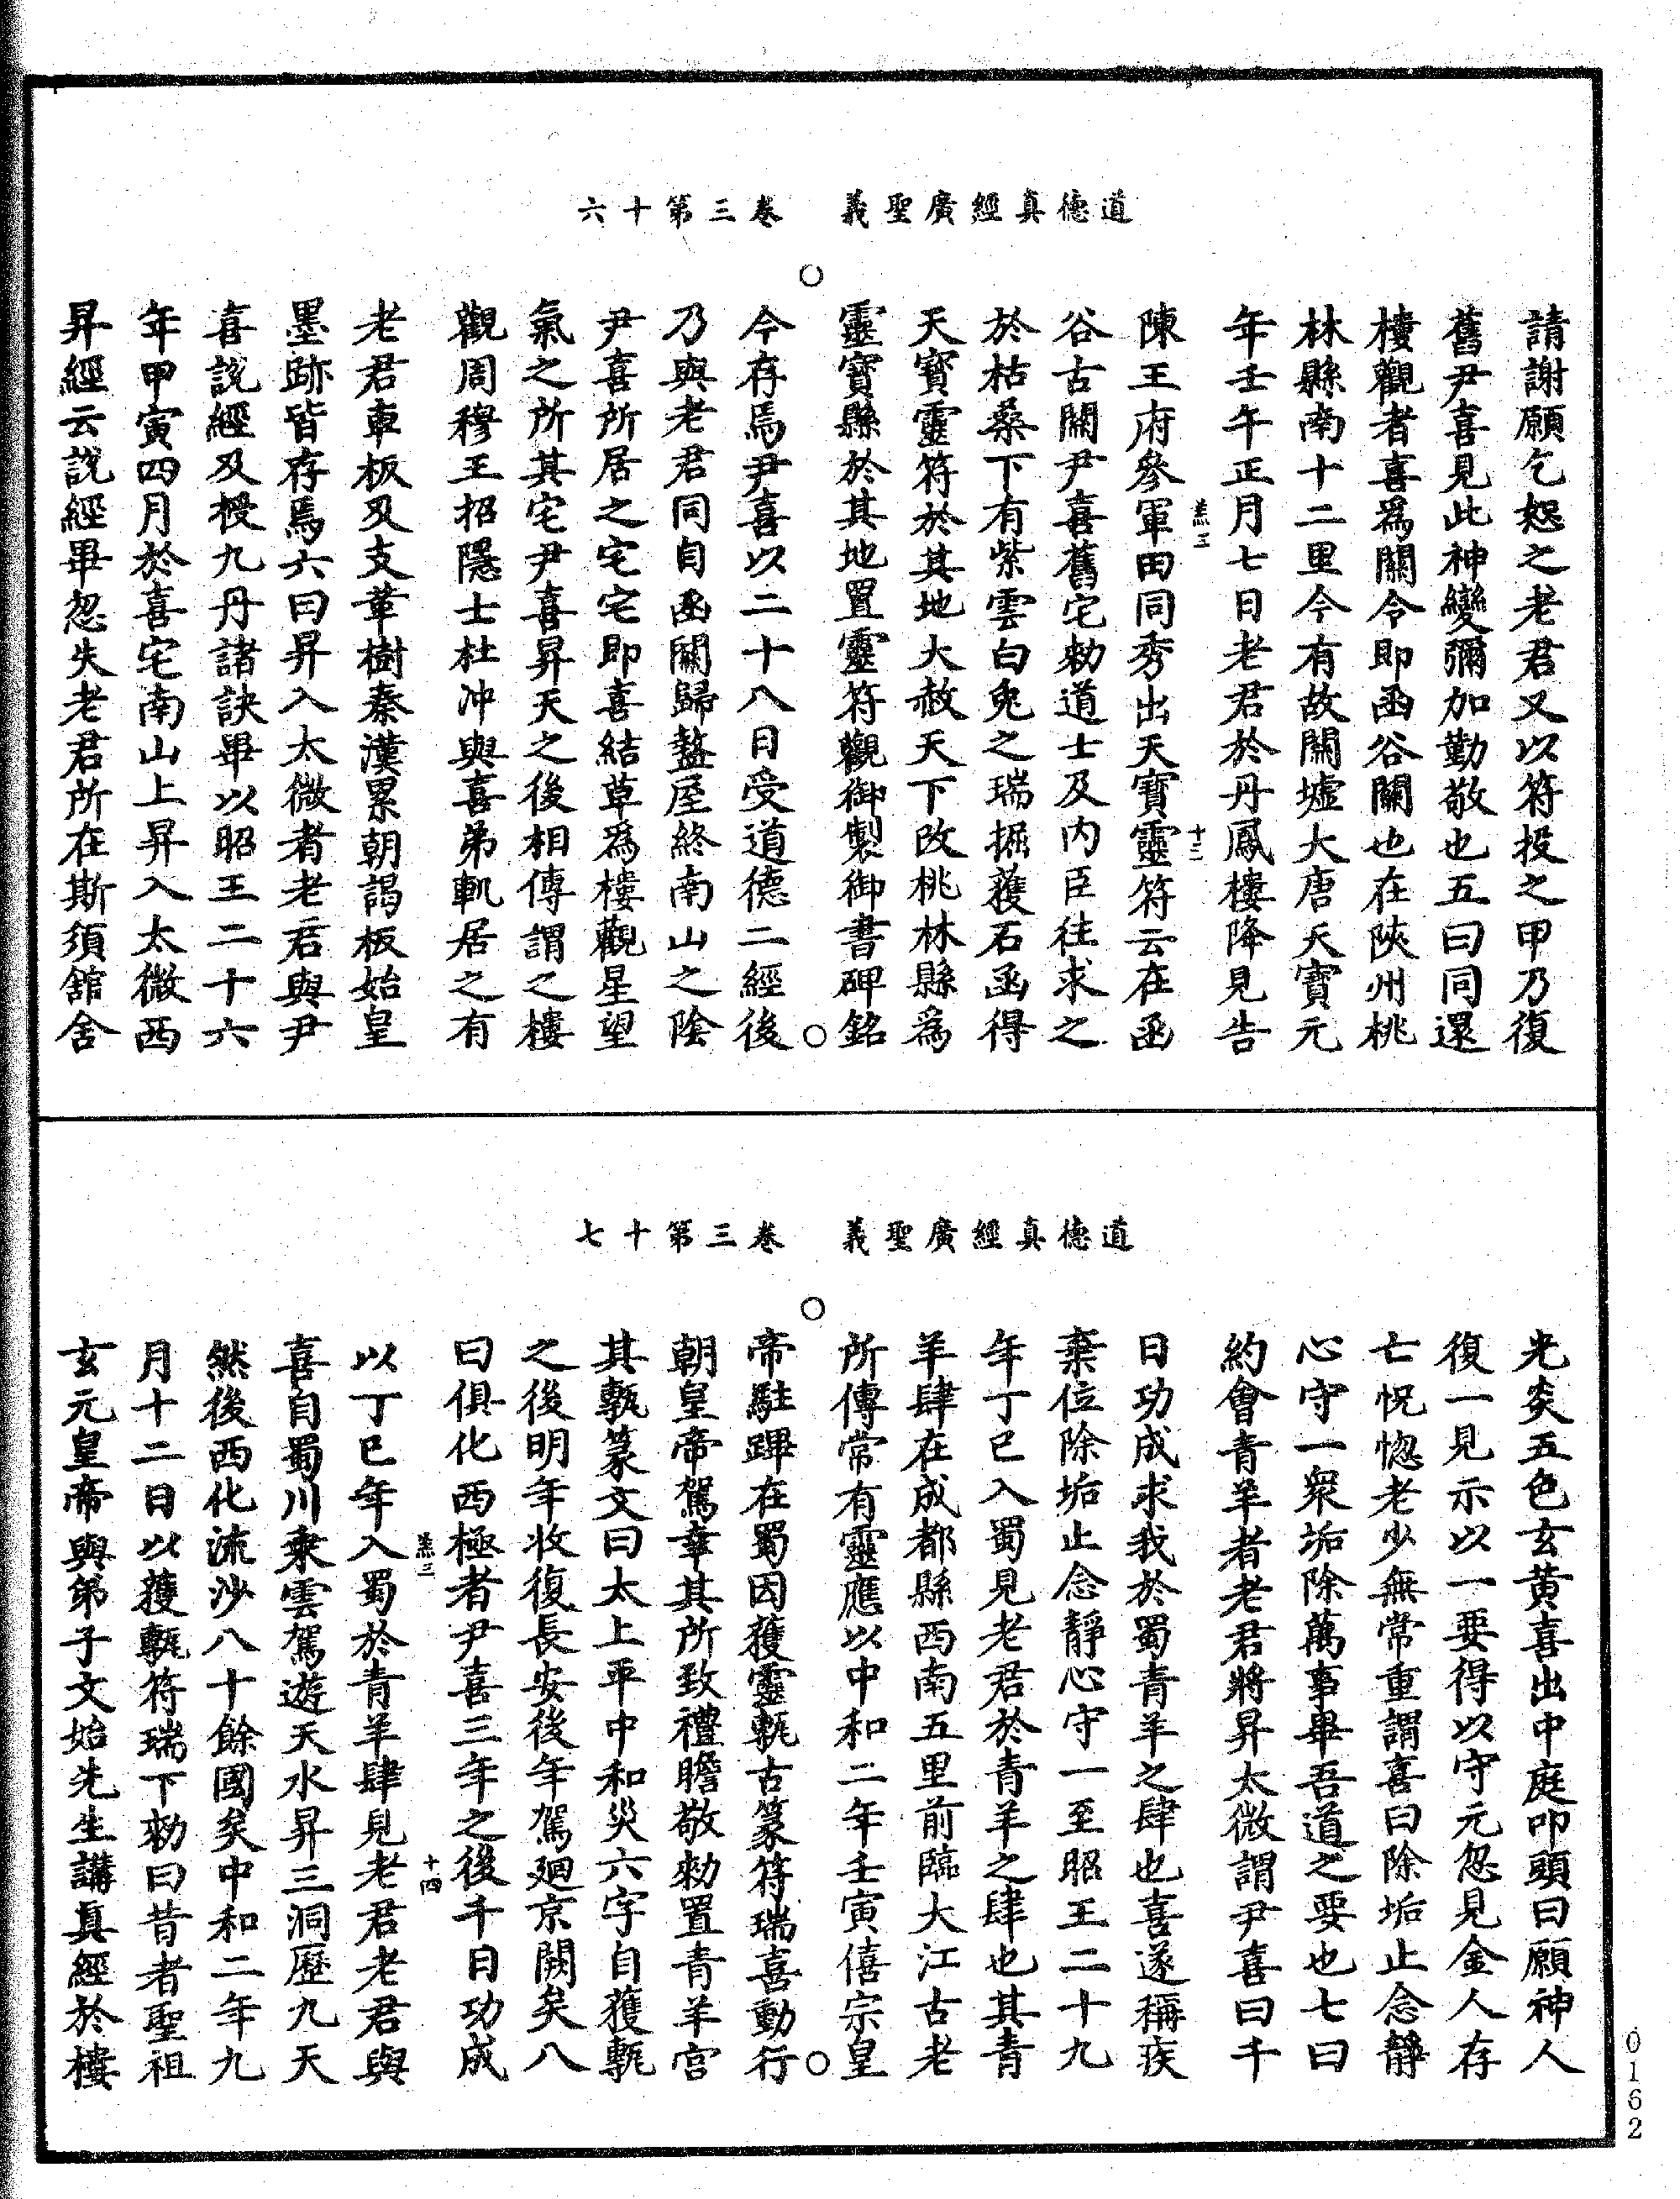 道德真經廣聖義　卷三第十六
請謝願乞恕之老君又以符投之甲乃復
舊尹喜見此神變彌加勤敬也五曰同還
樓觀者喜爲關令即函谷關也在陝州桃
林縣南十二里今有故關墟大唐天寶元
年壬午正月七日老君於丹鳳樓降見告
羔三　十三
陳王府參軍田同秀出天寶靈符云在函
谷古關尹喜舊宅勑道士及内臣往求之
於枯桑下有紫雲白兔之瑞掘獲石函得
天寶靈符於其地大赦天下改桃林縣爲
靈寶縣於其地置靈符觀御製御書碑銘
今存焉尹喜以二十八日受道德二經後
乃與老君同自函關歸盩厔終南山之陰
尹喜所居之宅宅即喜結草爲樓觀星望
氣之所其宅尹喜昇天之後相傳謂之樓
觀周穆王招隱士杜冲與喜弟軌居之有
老君車板及支革樹秦漢累朝謁板始皇
墨跡皆存焉六曰昇入太微者老君與尹
喜說經及授九丹諸訣畢以昭王二十六
年甲寅四月於喜宅南山上昇入太微西
昇經云說經畢忽失老君所在斯須舘舍
道德真經廣聖義　卷三第十七
光炎五色玄黃喜出中庭叩頭曰願神人
復一見示以一要得以守元忽見金人存
亡怳惚老少無常重謂喜曰除垢止念靜
心守一衆垢除萬事畢吾道之要也七曰
約會青羊者老君將昇太微謂尹喜曰千
日功成求我於蜀青羊之肆也喜遂稱疾
棄位除垢止念靜心守一至昭王二十九
年丁巳入蜀見老君於青羊之肆也其青
羊肆在成都縣西南五里前臨大江古老
所傳常有靈應以中和二年壬寅僖宗皇
帝駐蹕在蜀因獲靈甎古篆符瑞喜動行
朝皇帝駕幸其所致禮瞻敬勑置青羊宫
其甎篆文曰太上平中和災六字自獲甎
之後明年收復長安後年駕廻京闕矣八
曰俱化西極者尹喜三年之後千日功成
羔三　十四
以丁巳年入蜀於青羊肆見老君老君與
喜自蜀川乘雲駕遊天水昇三洞歷九天
然後西化流沙八十餘國矣中和二年九
月十二日以獲甎符瑞下勑曰昔者聖祖
玄元皇帝與弟子文始先生講真經於樓
0162